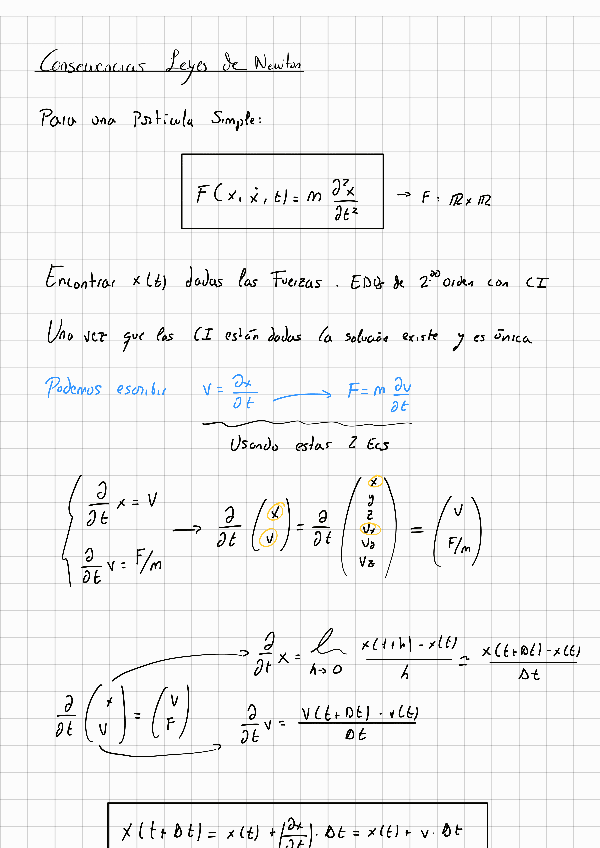 Consecuencias Leyes de Newton
Para una Partícula Simple:
F(x, ẋ, t) = m ∂²x/∂t² → F: ℝ × ℝ
Encontrar x(t) dadas las Fuerzas. EDOs de 2do Orden con CI
Una vez que las CI están dadas la solución existe y es única
Podemos escribir v = ∂x/∂t → F = m ∂v/∂t
Usando estas 2 Ecs
{ ∂/∂t x = v
∂/∂t v = F/m → ∂/∂t (x v) = ∂/∂t (x y z vx vy vz) = (v F/m)
∂/∂t x = l h→0 x(t+h) - x(t) / h = x(t+Δt) - x(t) / Δt
∂/∂t (x v) = (v F) ∂/∂t v = v(t+Δt) - v(t) / Δt
x(t+Δt) = x(t) + (∂x/∂t) · Δt = x(t) + v · Δt